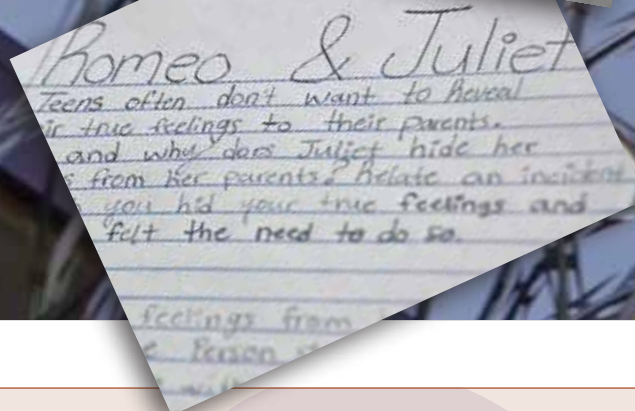 Romeo & Juliet
Teens often don't want to Reveal
ir true feelings to their parents.
and why does Juliet hide her
s from her parents? Relate an incident
you hid your true feelings and
felt the need to do so.
feelings from
Person